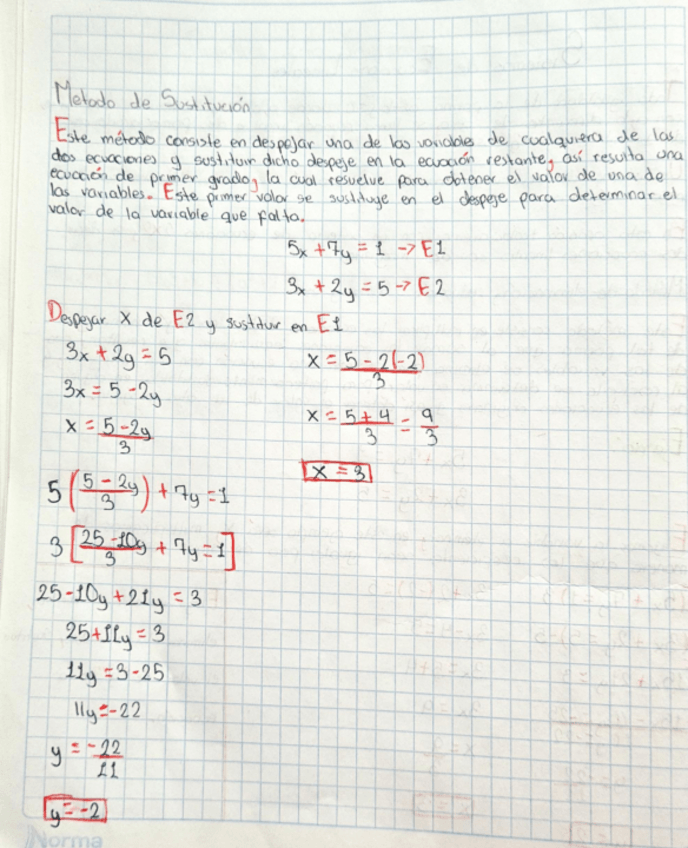 Metodo de Sustitución
Este método consiste en despejar una de las variables de cualquiera de las
dos ecuaciones y sustituir dicho despeje en la ecuación restante, así resulta una
ecuación de primer grado, la cual resuelve para obtener el valor de una de
las variables. Este primer valor se sustituye en el despeje para determinar el
valor de la variable que falta.
5x + 7y = 1 → E1
3x + 2y = 5 → E2
Despejar x de E2 y sustituir en E1
3x + 2y = 5
3x = 5 - 2y
x = (5 - 2y)/3
5 ((5 - 2y)/3) + 7y = 1
3 [(25 - 10y)/3 + 7y = 1]
25 - 10y + 21y = 3
25 + 11y = 3
11y = 3 - 25
11y = -22
y = -22/11
y = -2
x = (5 - 2(-2))/3
x = (5 + 4)/3 = 9/3
x = 3
Norma